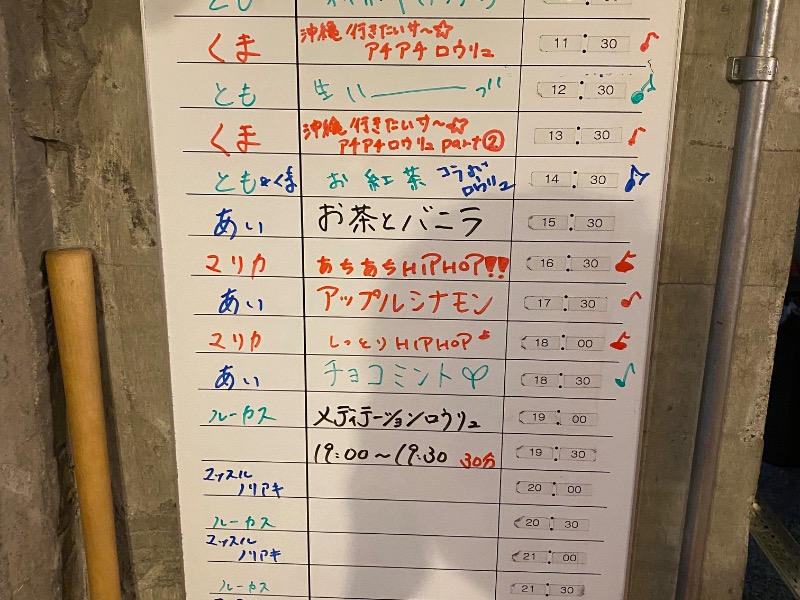 とも
くま 沖縄行きたいす〜☆ 11:30 ♪
アチアチロウリュ
とも 生い 12:30 ♪
くま 沖縄行きたいす〜☆ 13:30 ♪
アチアチロウリュ part②
とも&くま お紅茶 コラボ 14:30 ♪
ロウリュ
あい お茶とバニラ 15:30
マリカ あちあちHIPHOP!! 16:30 ♪
あい アップルシナモン 17:30 ♪
マリカ しっとりHIPHOP♪ 18:00 ♪
あい チョコミント♡ 18:30 ♪
ルーカス メディテーションロウリュ 19:00
19:00〜19:30 30分 19:30
マッスル
ノリアキ 20:00
ルーカス 20:30
マッスル
ノリアキ 21:00
ルーカス 21:30